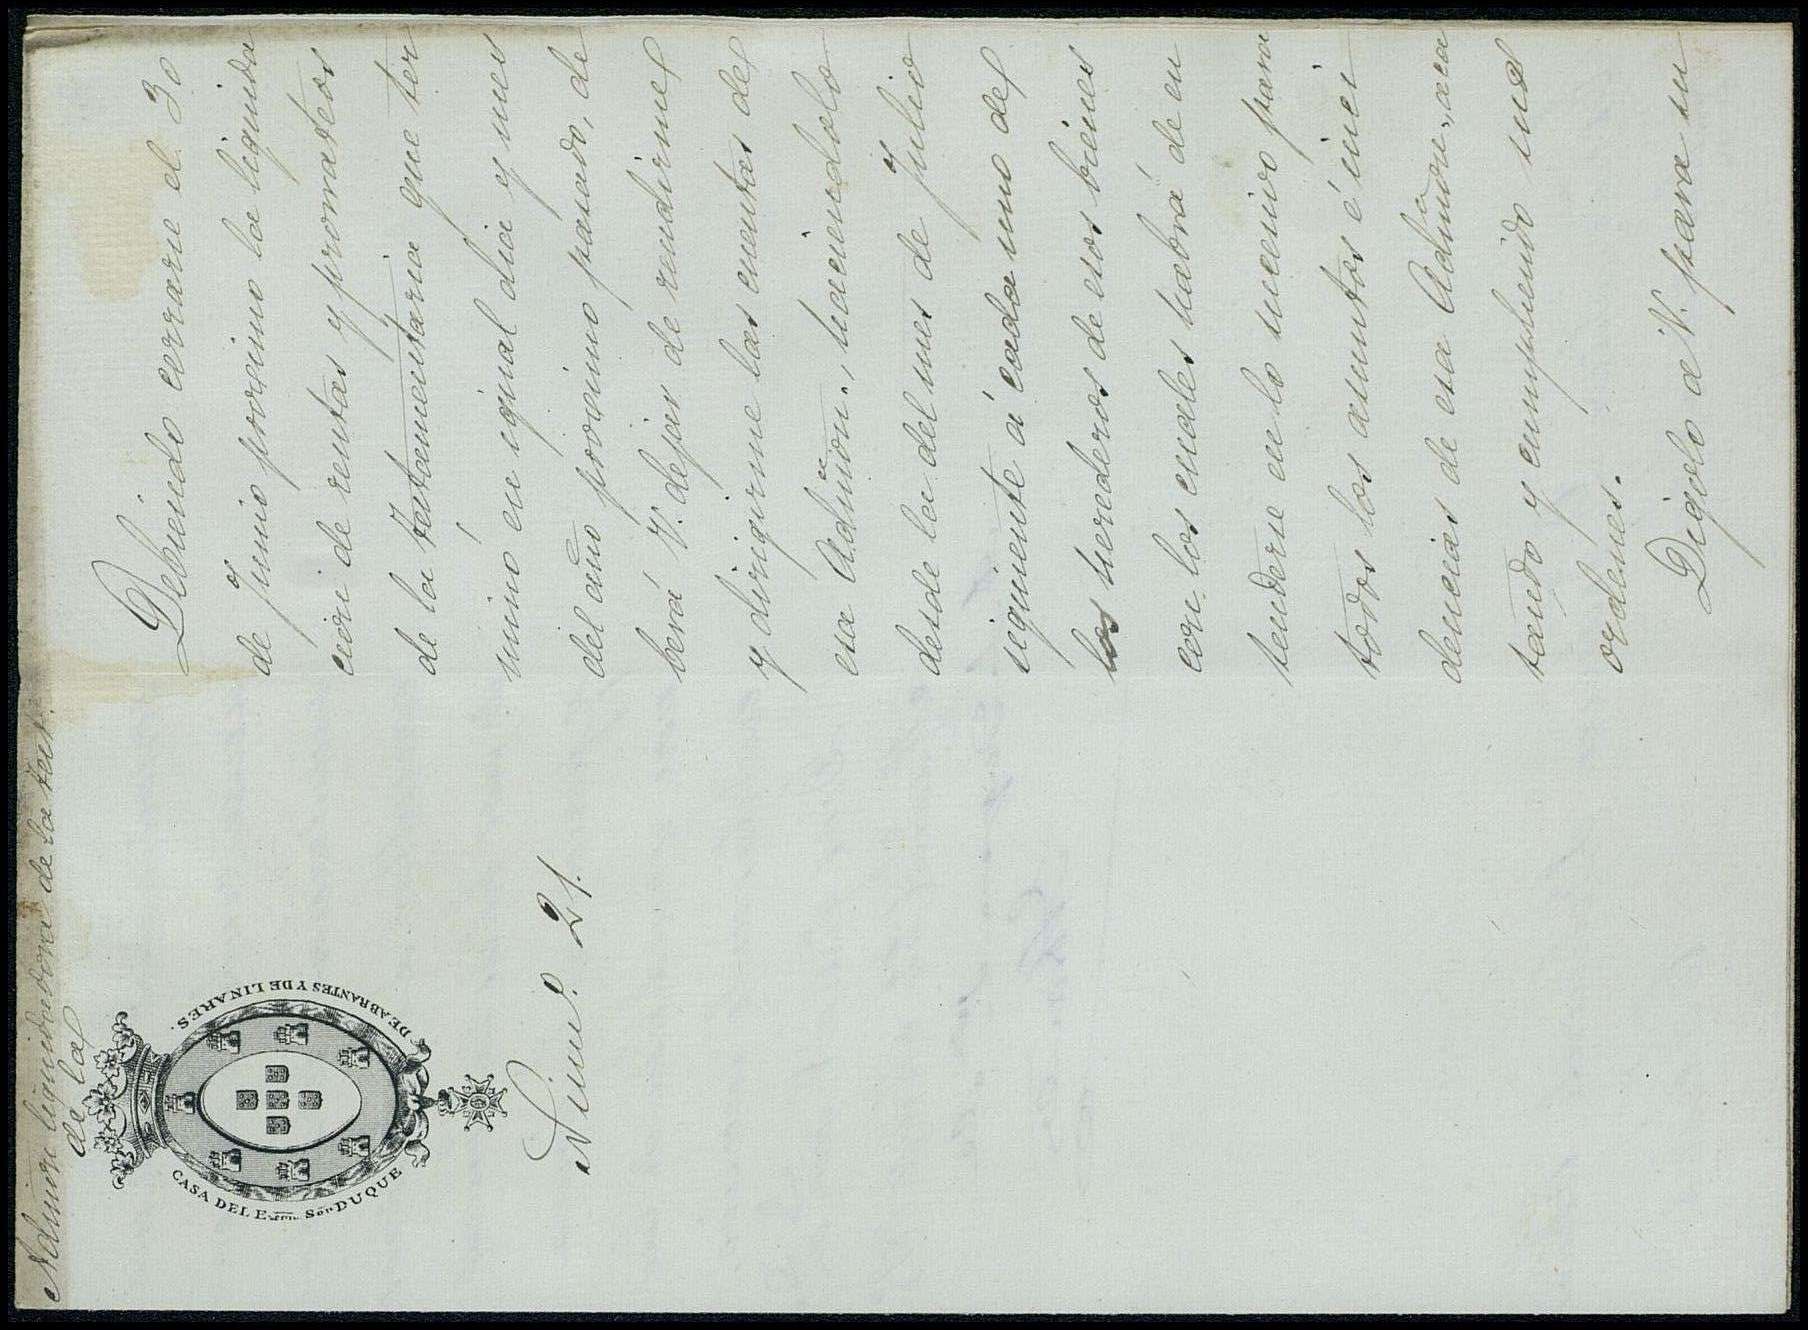 Admôn. liquidadora de la Test.ª
de la
CASA DEL EXCMO. SOR. DUQUE DE ABRANTES Y DE LINARES.
Núm.º 21.
Debiendo cerrarse el 30
de Junio procsimo la liquida
cion de rentas y prorrateos
de la Testamentaria que ter
minó en igual dia y mes
del año procsimo pasado, de
berá V. dejar de rendirme
y dirigirme las cuentas de
esa Admôn., haciendolo
desde la del mes de Julio
siguiente á cada uno de
los herederos de esos bienes
con los cuales habrá de en
tenderse en lo sucesivo para
todos los asuntos é inci
dencias de esa Admôn., aca
tando y cumpliendo sus
ordenes.
Digolo a V. para su